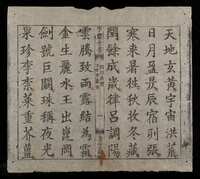 天地玄黃宇宙洪荒
日月盈昃辰宿列張
寒來暑往秋收冬藏
閏餘成歲律呂調陽
雲騰致雨露結爲霜
金生麗水玉出崑岡
劍號巨闕珠稱夜光
果珍李柰菜重芥薑